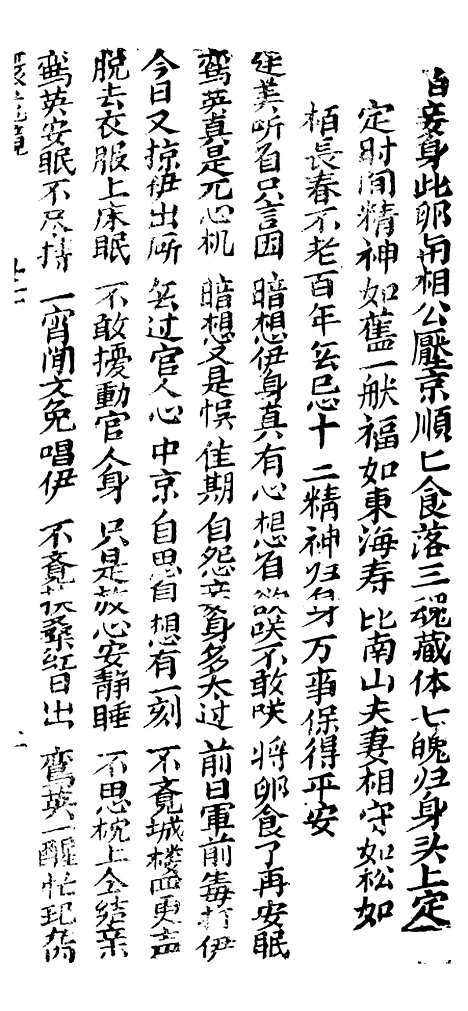 自妾身此卵与相公壓亰順匕食落三魂藏体七魄归身头上定
定时间精神如舊一般福如東海寿比南山夫妻相守如松如
栢長春不老百年无忌十二精神归身万事保得平安
廷美听着只言因 暗想伊身真有心 想着欲咲不敢咲 将卵食了再安眠
鸾英真是无心机 暗想又是悞佳期 自怨妾身多大过 前日軍前毒打伊
今日又掠伊出所 无过官人心中亰 自思自想有一刻 不覔城楼四更声
脱去衣服上床眠 不敢擾動官人身 只是放心安静睡 不思枕上仝結亲
鸾英安眠不尽持 一宵間文免唱伊 不覔扶桑紅日出 鸾英一醒忙起